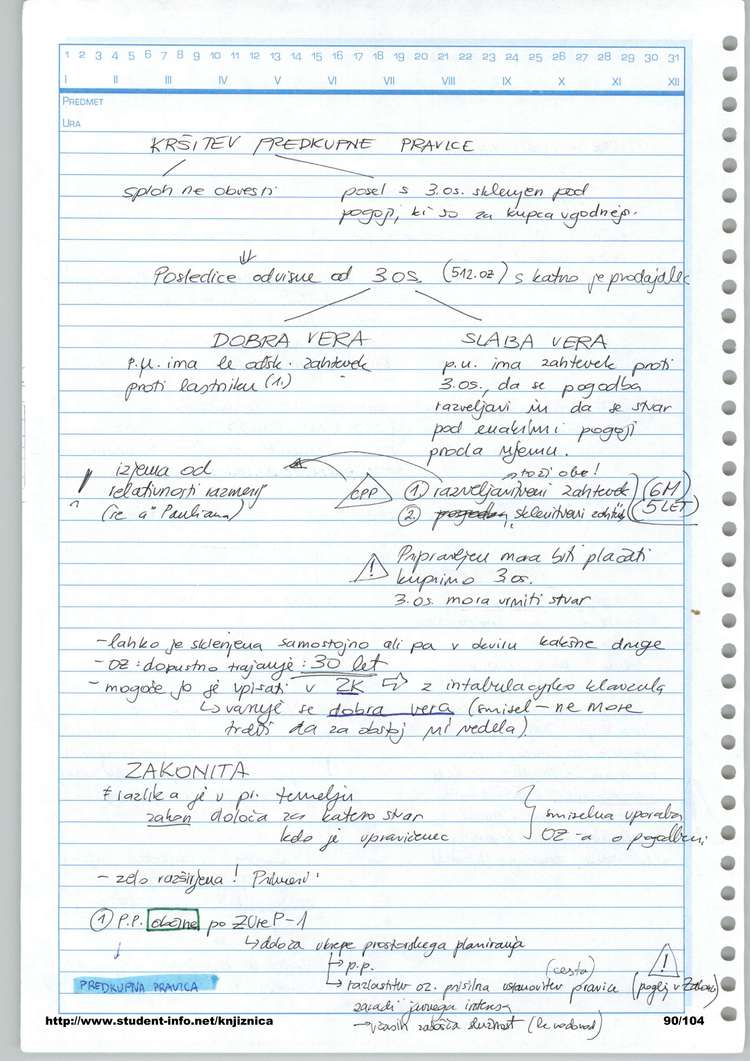 1 2 3 4 5 6 7 8 9 10 11 12 13 14 15 16 17 18 19 20 21 22 23 24 25 26 27 28 29 30 31
I II III IV V VI VII VIII IX X XI XII
PREDMET
URA
KRŠITEV PREDKUPNE PRAVICE
sploh ne obvesti
posel s 3.os. sklenjen pod
pogoji, ki so za kupca ugodnejši.
Posledice odvisne od 3.os. (512.OZ) s katero je prodajalec
DOBRA VERA
p.u. ima le odšk. zahtevek
proti lastniku (1.)
SLABA VERA
p.u. ima zahtevek proti
3.os., da se pogodba
razveljavi in da se stvar
pod enakimi pogoji
proda njemu.
izjema od
relativnosti razmerij
(le a° Pauliana)
ČPP
toži oba!
1. razveljavitveni zahtevek (6M)
2. sklenitveni (5 LET)
! Pripravljen mora biti plačati
kupnino 3.os.
3.os. mora vrniti stvar
- lahko je sklenjena samostojno ali pa v okviru kakšne druge
- OZ: dopustno trajanje: 30 let
- mogoče jo je vpisati v ZK ⇨ z intabulacijsko klavzulo
↳ varuje se dobra vera (smisel - ne more
trditi da za obstoj ni vedela).
ZAKONITA
≠ razlika je v pr. temelju
zakon določa za katero stvar
kdo je upravičenec
smiselna uporaba
OZ-a o pogodbeni
- zelo razširjena! Primeri:
1 P.P. občine po ZUreP-1
↳ določa ukrepe prostorskega planiranja
↳ p.p.
↳ razlastitev oz. prisilna ustanovitev pravice (poglej v Zakonu)
(cesta)
!
zaradi javnega interesa
→ včasih zadošča služnost (le vodovod)
PREDKUPNA PRAVICA
http://www.student-info.net/knjiznica
90/104